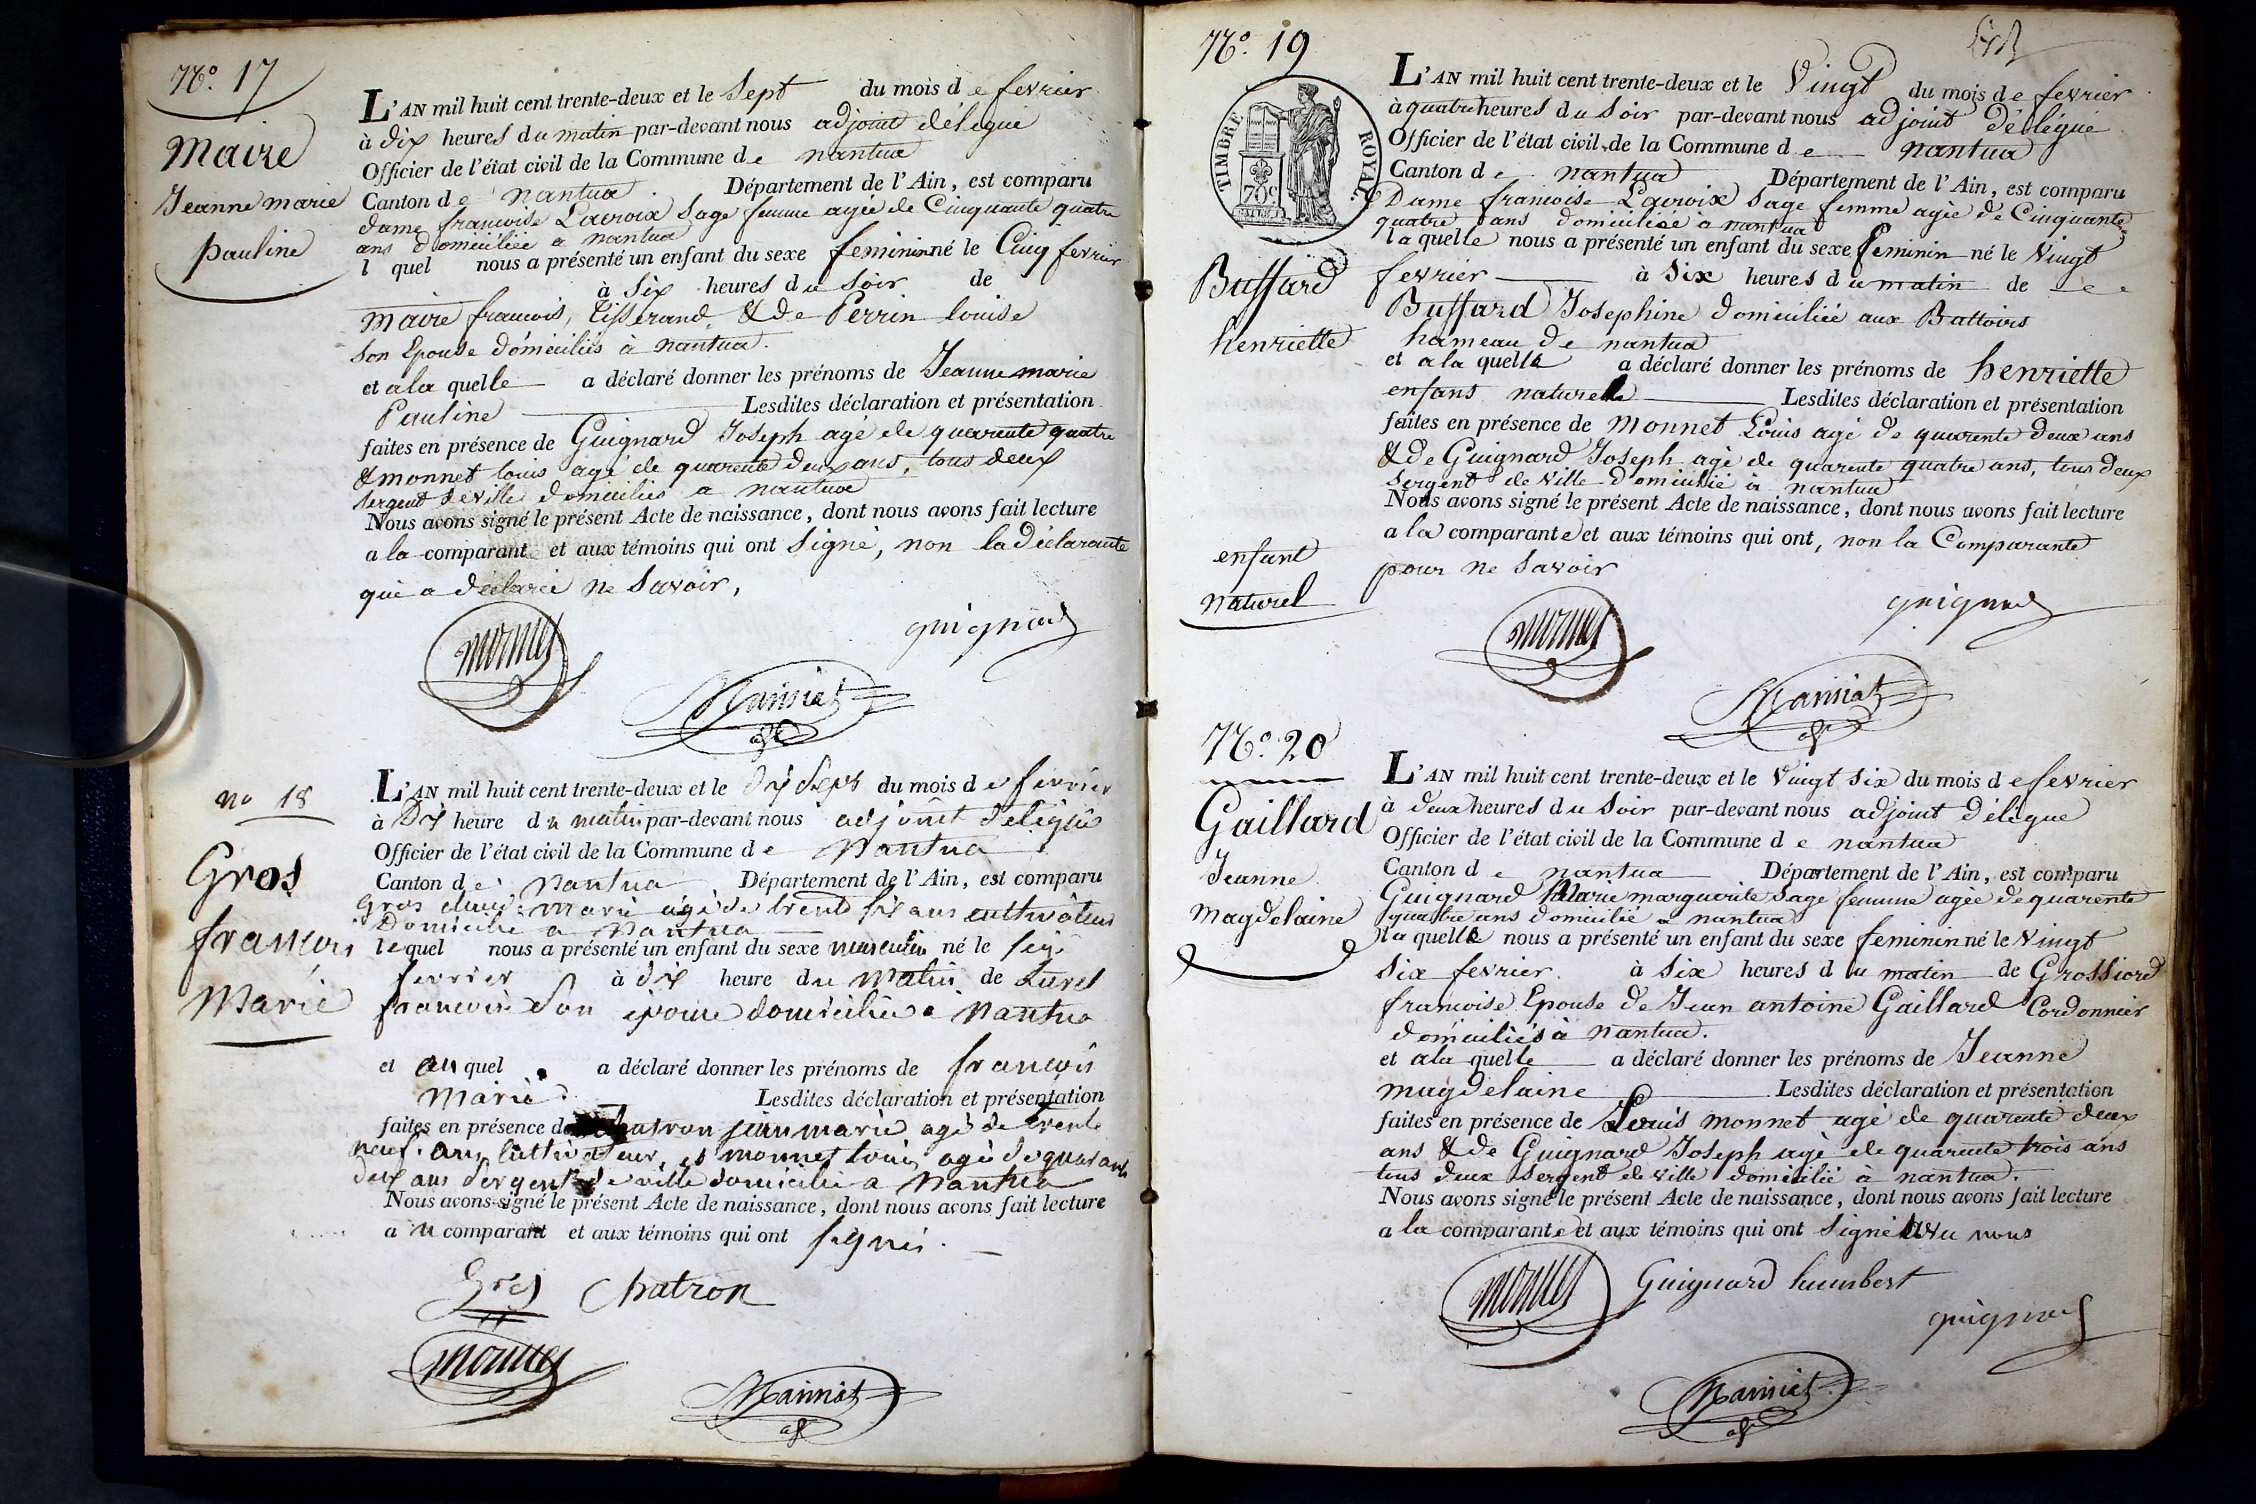 N.° 17
Maire
Jeanne marie
pauline
L'AN mil huit cent trente-deux et le Sept du mois de fevrier
à dix heures du matin par-devant nous adjoint délégué
Officier de l'état civil de la Commune de nantua
Canton de nantua. Département de l'Ain, est comparu
dame francoise Lacroix Sage femme agée de Cinquante quatre
ans domiciliée a nantua
l quel nous a présenté un enfant du sexe feminin né le Cinq fevrier
à Six heures du Soir de
maire francois, tisserand, & de Perrin louise
son Epouse domiciliés à nantua.
et a la quelle a déclaré donner les prénoms de Jeanne marie
Pauline Lesdites déclaration et présentation
faites en présence de Guignard Joseph agé de quarente quatre
& monnet louis agé de quarente deux ans, tous deux
sergent de ville domiciliés a nantua
Nous avons signé le présent Acte de naissance, dont nous avons fait lecture
a la comparant et aux témoins qui ont Signé, non la déclarante
qui a déclaré ne Savoir,
monnet
guignard
no 18
Gros
francois
Marie
L'AN mil huit cent trente-deux et le dix sept du mois de fevrier
à Dix heure du matin par-devant nous adjoint délégué
Officier de l'état civil de la Commune de Nantua
Canton de Nantua Département de l'Ain, est comparu
Gros marie agé de trente six ans cultivateur
Domicilié a Nantua
lequel nous a présenté un enfant du sexe masculin né le
fevrier à dix heure du Matin de
francoise Son epouse domiciliée a Nantua
et au quel a déclaré donner les prénoms de francois
Marie. Lesdites déclaration et présentation
faites en présence de Chatron jean marie agé de trente
neuf ans Cultivateur, et monnet louis agé de quarante
deux ans Sergent de ville domicilié a Nantua
Nous avons signé le présent Acte de naissance, dont nous avons fait lecture
au comparant et aux témoins qui ont signés.
Gros Chatron
monnet
N.° 19
TIMBRE ROYAL
70c
Buffard
henriette
enfant
naturel
L'AN mil huit cent trente-deux et le Vingt du mois de fevrier
à quatre heures du Soir par-devant nous adjoint délégué
Officier de l'état civil de la Commune de nantua
Canton de nantua Département de l'Ain, est comparu
Dame francoise Lacroix Sage femme agée de Cinquante
quatre ans domiciliée a nantua
la quelle nous a présenté un enfant du sexe feminin né le Vingt
fevrier à Six heures du matin de
Buffard Josephine domiciliée aux Battoirs
hameau de nantua
et a la quelle a déclaré donner les prénoms de henriette
enfans naturelle Lesdites déclaration et présentation
faites en présence de monnet Louis agé de quarente deux ans
& de Guignard Joseph agé de quarente quatre ans, tous deux
sergent de ville domicilié a nantua
Nous avons signé le présent Acte de naissance, dont nous avons fait lecture
a la comparante et aux témoins qui ont, non la Comparante
pour ne Savoir
monnet
guignard
N.° 20
Gaillard
Jeanne
magdelaine
L'AN mil huit cent trente-deux et le Vingt six du mois de fevrier
à deux heures du Soir par-devant nous adjoint délégué
Officier de l'état civil de la Commune de nantua
Canton de nantua Département de l'Ain, est comparu
Guignard Marie marguerite Sage femme agée de quarente
quatre ans domicilié a nantua
la quelle nous a présenté un enfant du sexe feminin né le Vingt
Six fevrier à Six heures du matin de Grossiord
francoise Epouse de Jean antoine Gaillard Cordonnier
domiciliés à nantua.
et a la quelle a déclaré donner les prénoms de Jeanne
magdelaine Lesdites déclaration et présentation
faites en présence de Louis monnet agé de quarente deux
ans & de Guignard Joseph agé de quarente trois ans
tous deux sergent de ville domicilié à nantua.
Nous avons signé le présent Acte de naissance, dont nous avons fait lecture
a la comparante et aux témoins qui ont signé avec nous
monnet Guignard humbert
guignard